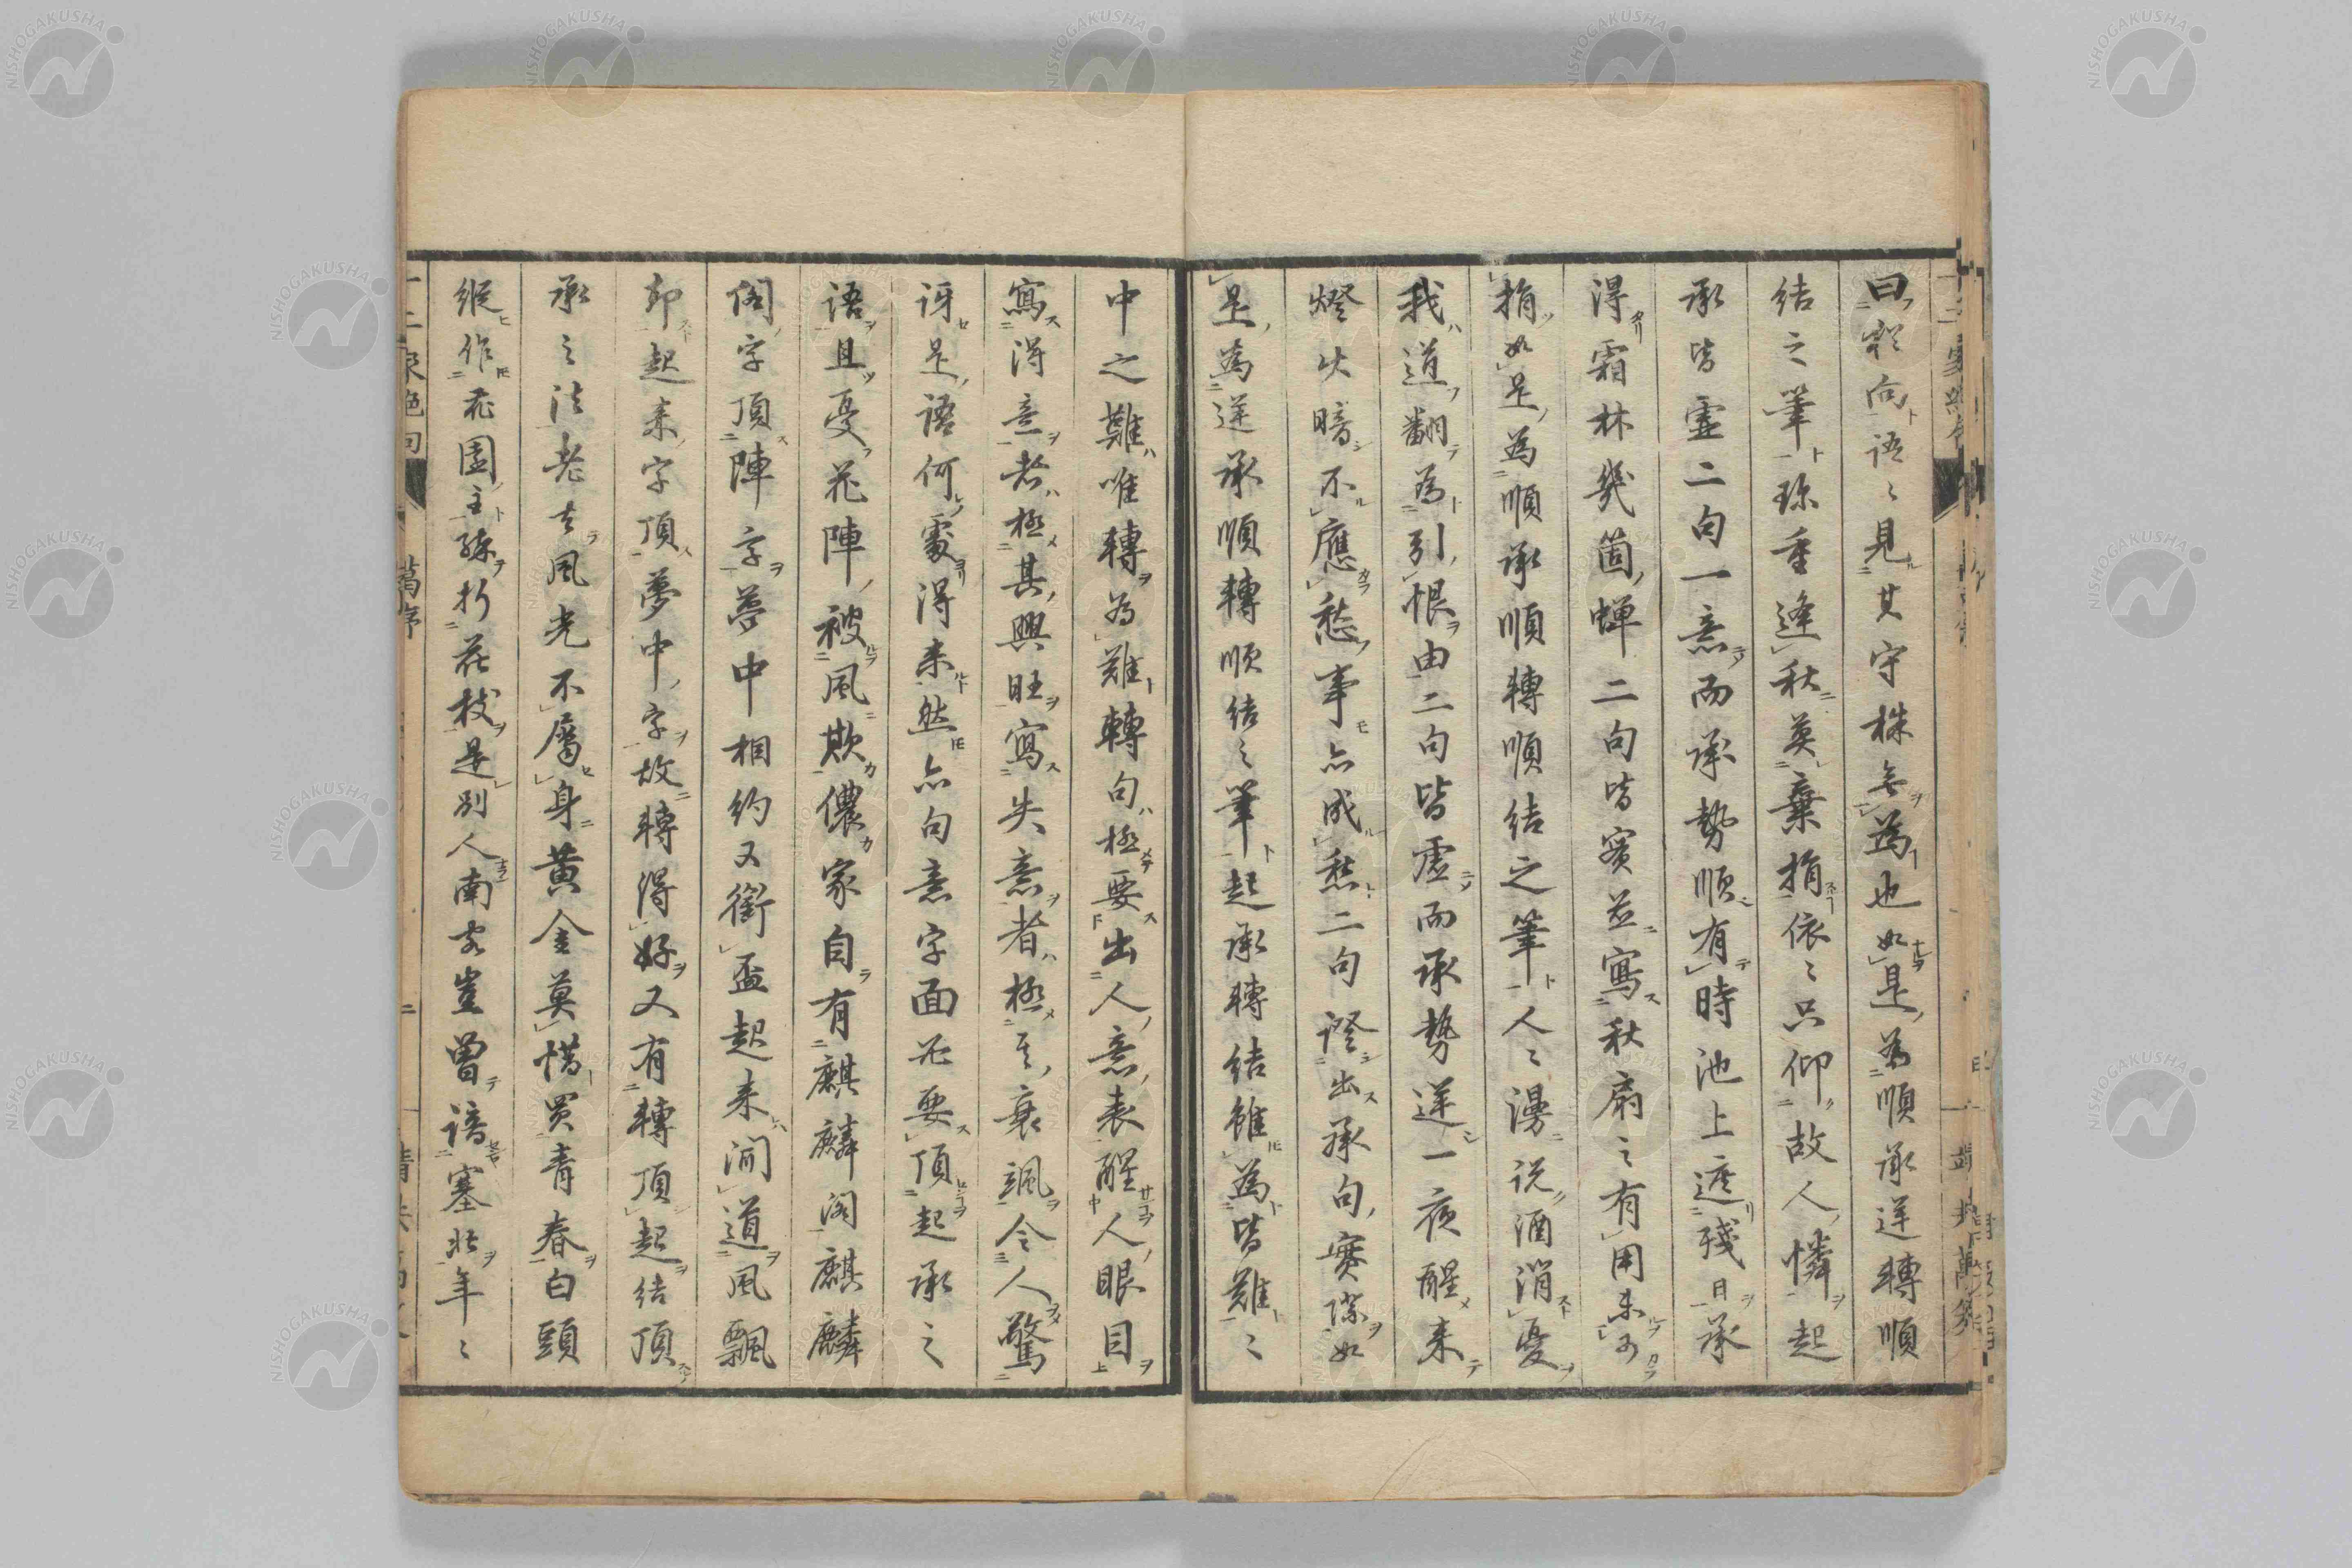 曰擬向語々見其守株無爲也如是爲順承逆轉順
結之筆珍重逢秋莫棄捐依々只仰故人憐起
承皆虛二句一意而承勢順有時池上遮殘日承
得霜林幾箇蟬二句皆實並寫秋扇之有用未可
捐如是爲順承順轉順結之筆人々漫說酒消憂
我道翻爲引恨由二句皆虛而承勢逆一夜醒來
燈火暗不應愁事亦成愁二句證出承句實際如
是爲逆承順轉順結之筆起承轉結雖爲皆難々
中之難唯轉爲難轉句極要出人意表醒人眼目
寫得意者極其興旺寫失意者極其衰颯令人驚
訝是語何處得來然亦句意字面必要頂起承之
語且憂花陣被風欺儂家自有麒麟閣麒麟
閣字頂陣字夢中相約又銜盃起來聞道風飄
却起來字頂夢中字故轉得好又有轉頂起結頂
承之法老去風光不屬身黃金莫惜買青春白頭
縱作花園主醉折花枝是別人南客豈曾諳塞北年々
十二家絕句
萬序
二
NISHOGAKUSHA